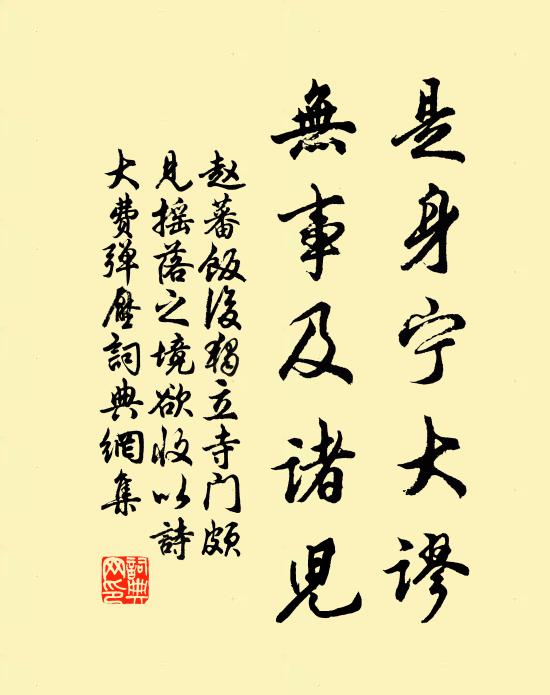 是身宁大谬
無事及诸兒
赵蕃飯後獨立寺门颇
見摇落之境欲收以詩
大费弹壓詞典網集
詞典网印